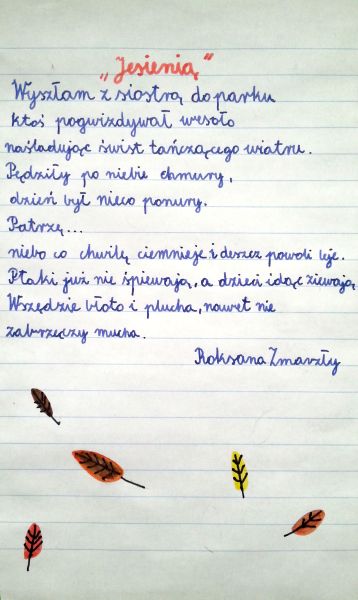 „Jesienią"
Wyszłam z siostrą do parku
ktoś pogwizdywał wesoło
naśladując świst tańczącego wiatru.
Pędziły po niebie chmury,
dzień był nieco ponury.
Patrzę...
niebo co chwilę ciemnieje i deszcz powoli leje.
Ptaki już nie śpiewają, a dzieci idąc ziewają
Wszędzie błoto i plucha, nawet nie
zabrzęczy mucha.
Roksana Zmarzły